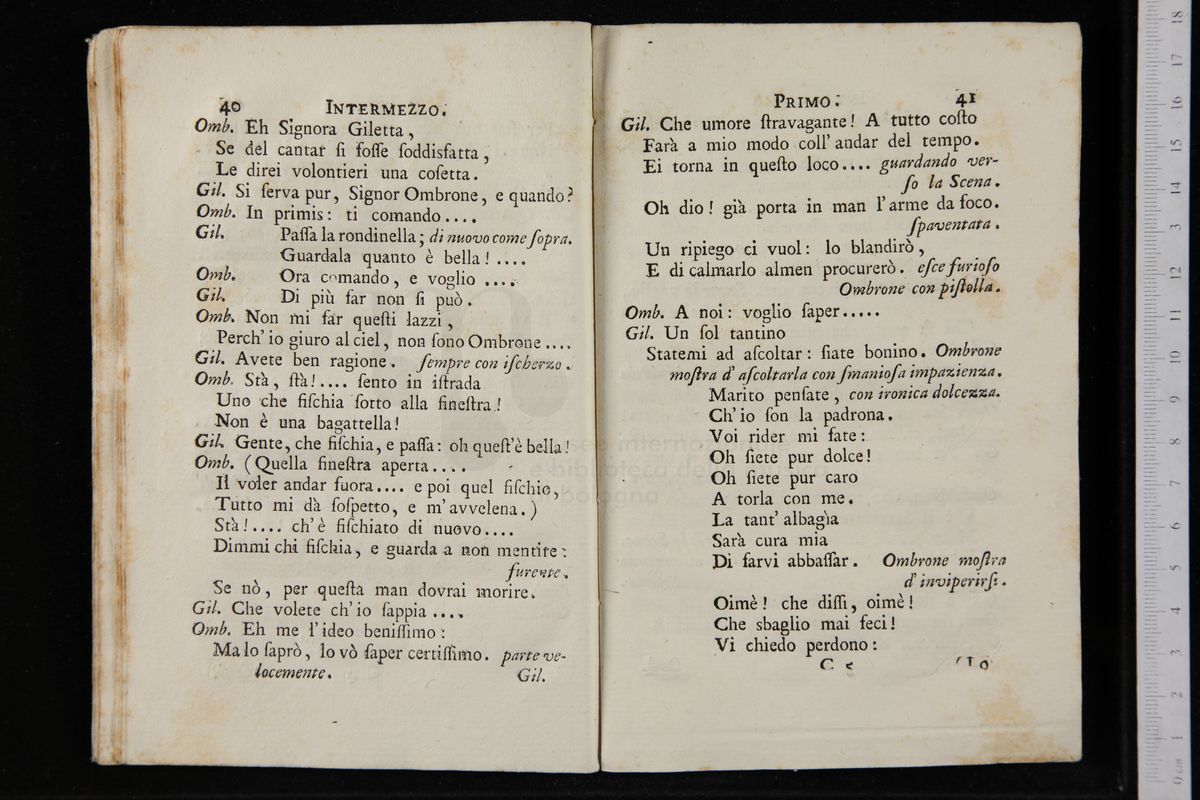 40 INTERMEZZO.
Omb. Eh Signora Giletta,
Se del cantar ſi foſſe ſoddisfatta,
Le direi volontieri una coſetta.
Gil. Si ſerva pur, Signor Ombrone, e quando?
Omb. In primis: ti comando....
Gil. Paſſa la rondinella; di nuovo come ſopra.
Guardala quanto è bella! ....
Omb. Ora comando, e voglio ....
Gil. Di più far non ſi può.
Omb. Non mi far queſti lazzi,
Perch' io giuro al ciel, non ſono Ombrone....
Gil. Avete ben ragione. ſempre con iſcherzo.
Omb. Stà, ſtà!.... ſento in iſtrada
Uno che fiſchia ſotto alla fineſtra!
Non è una bagattella!
Gil. Gente, che fiſchia, e paſſa: oh queſt'è bella!
Omb. (Quella fineſtra aperta....
Il voler andar fuora.... e poi quel fiſchio,
Tutto mi dà ſoſpetto, e m'avvelena.)
Stà!.... ch'è fiſchiato di nuovo....
Dimmi chi fiſchia, e guarda a non mentire:
furente.
Se nò, per queſta man dovrai morire.
Gil. Che volete ch' io ſappia ....
Omb. Eh me l'ideo beniſſimo:
Ma lo ſaprò, lo vò ſaper certiſſimo. parte ve-
locemente. Gil.
PRIMO. 41
Gil. Che umore ſtravagante! A tutto coſto
Farà a mio modo coll' andar del tempo.
Ei torna in queſto loco.... guardando ver-
ſo la Scena.
Oh dio! già porta in man l'arme da foco.
ſpaventata.
Un ripiego ci vuol: lo blandirò,
E di calmarlo almen procurerò. eſce furioſo
Ombrone con piſtolla.
Omb. A noi: voglio ſaper.....
Gil. Un ſol tantino
Statemi ad aſcoltar: ſiate bonino. Ombrone
moſtra d' aſcoltarla con ſmanioſa impazienza.
Marito penſate, con ironica dolcezza.
Ch' io ſon la padrona.
Voi rider mi fate:
Oh ſiete pur dolce!
Oh ſiete pur caro
A torla con me.
La tant' albagìa
Sarà cura mia
Di farvi abbaſſar. Ombrone moſtra
d' inviperirſi.
Oimè! che diſſi, oimè!
Che sbaglio mai feci!
Vi chiedo perdono:
C 5